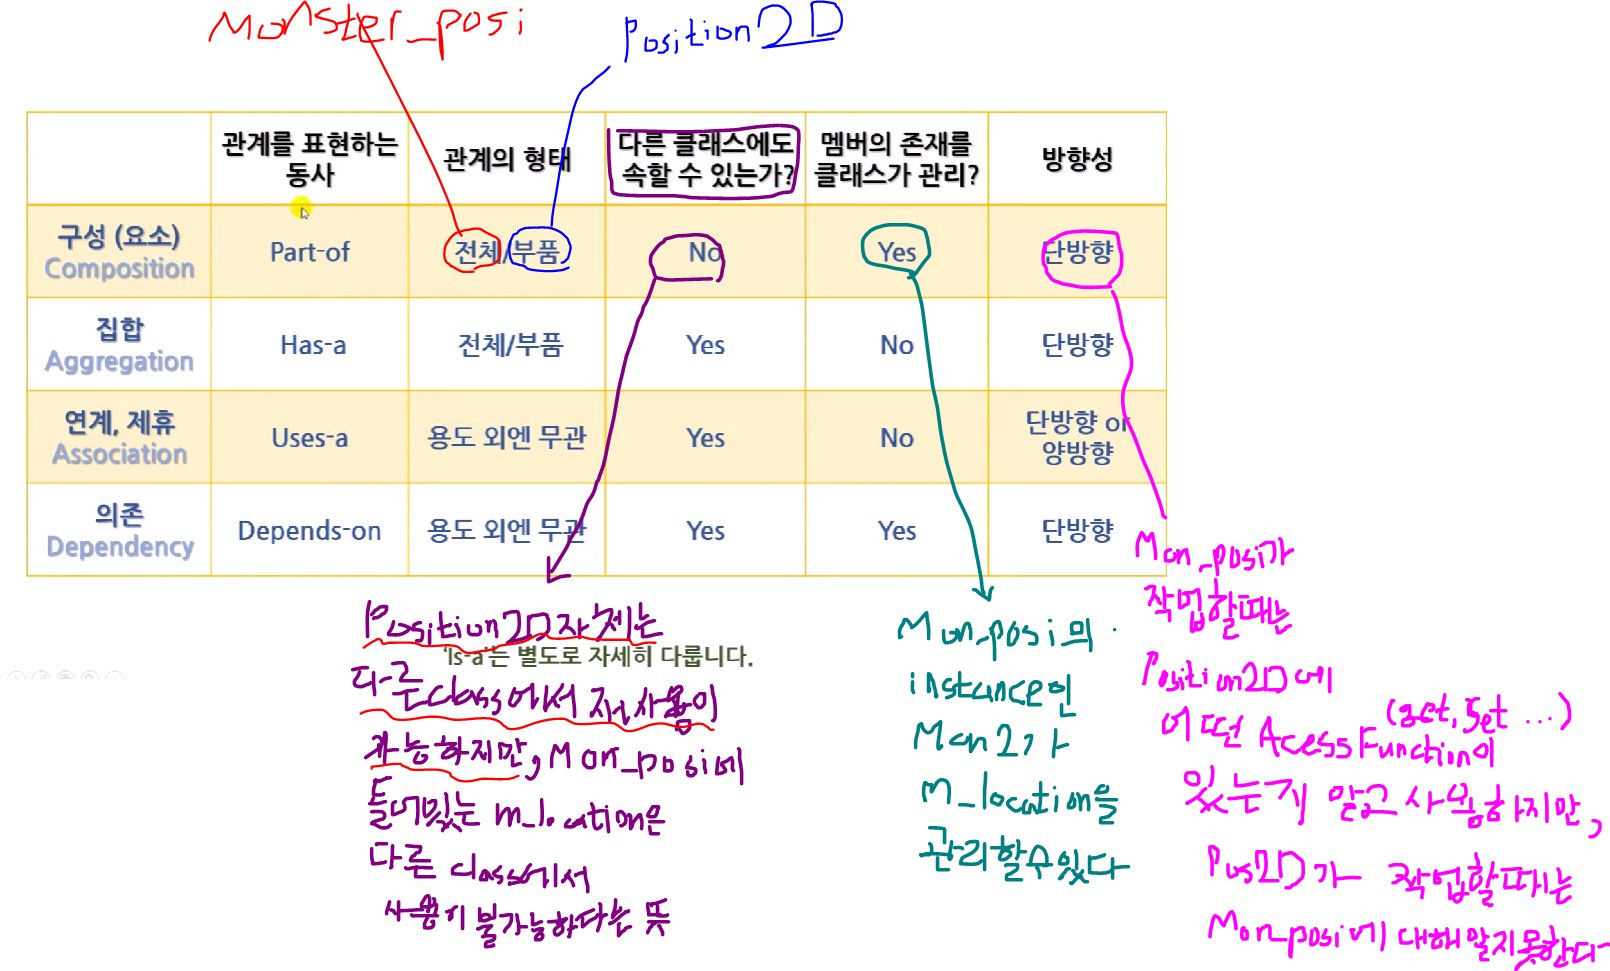 Monster_posi
Position2D
관계를 표현하는 동사
관계의 형태
다른 클래스에도 속할 수 있는가?
멤버의 존재를 클래스가 관리?
방향성
구성 (요소) Composition
Part-of
전체/부품
No
Yes
단방향
집합 Aggregation
Has-a
전체/부품
Yes
No
단방향
연계, 제휴 Association
Uses-a
용도 외엔 무관
Yes
No
단방향 or 양방향
의존 Dependency
Depends-on
용도 외엔 무관
Yes
Yes
단방향
'Is-a'는 별도로 자세히 다룹니다.
Position2D 자체는
다른 class에서 재사용이
가능하지만, Mon_posi에
들어있는 m_location은
다른 class에서
사용이 불가능하다는 뜻
Mon_posi의
instance인
Mon2가
m_location을
관리할수있다
Mon_posi가
작업할때는
Position2D에
(get, Set ...)
어떤 AcessFunction이
있는지 알고 사용하지만,
Pos2D가 작업할때는
Mon_posi에 대해 알지못한다